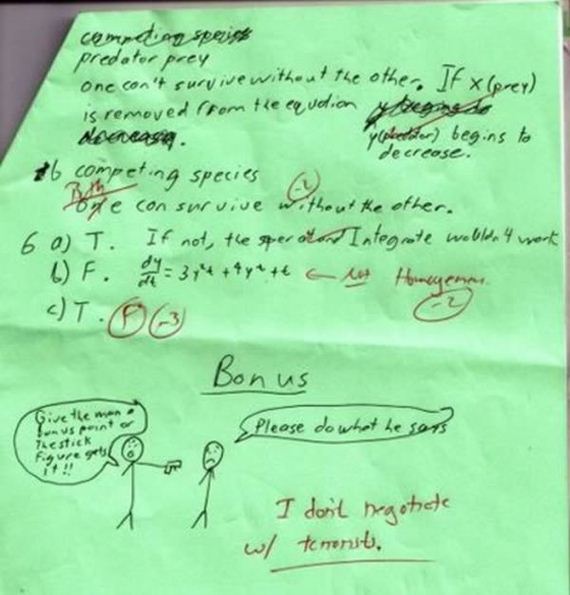 competing species
predator prey
one can't survive without the other. If x (prey)
is removed from the equation y begins to
decrease. y(predator) begins to
decrease.
b competing species
Both -2
one can survive without the other.
6 a) T. If not, the Integrate wouldn't work
b) F. dy/dt = 3y²t + 4y² + t ← not Homogenous.
-2
c) T. F -3
Bonus
Give the man a
bonus point or
The stick
Figure gets
it!!
Please do what he says
I don't negotiate
w/ terrorists.